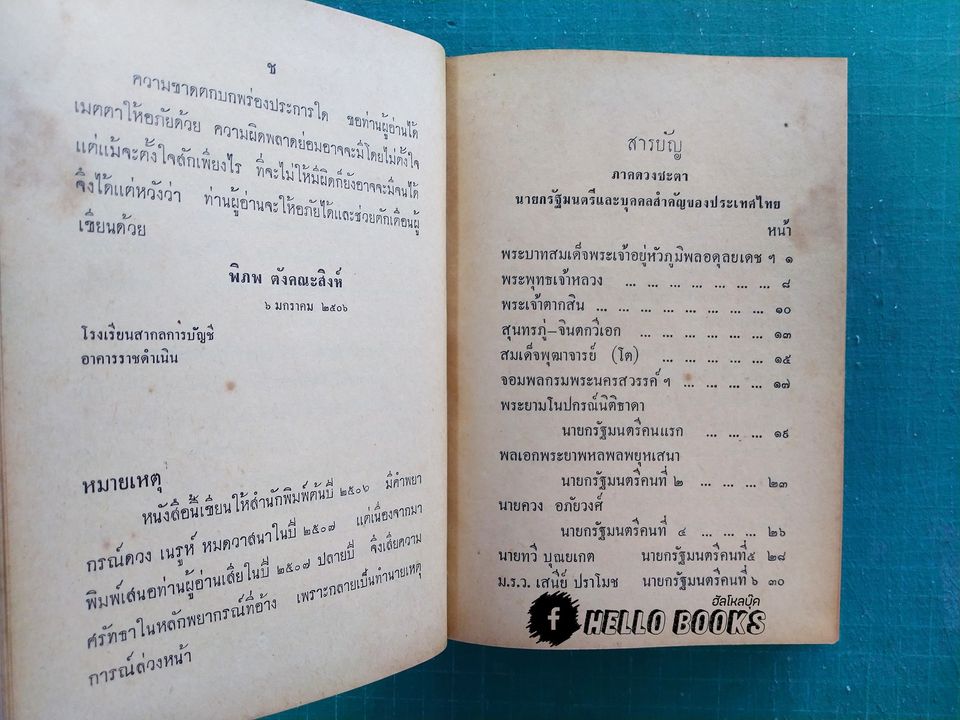 ช
ความขาดตกบกพร่องประการใด ขอท่านผู้อ่านได้
เมตตาให้อภัยด้วย ความผิดพลาดย่อมอาจจะมีโดยไม่ตั้งใจ
แต่แม้จะตั้งใจสักเพียงไร ที่จะไม่ให้มีผิดก็ยังอาจจะมีจนได้
จึงได้แต่หวังว่า ท่านผู้อ่านจะให้อภัยได้และช่วยตักเตือนผู้
เขียนด้วย
พิภพ ตังคณะสิงห์
๖ มกราคม ๒๕๐๖
โรงเรียนสากลการบัญชี
อาคารราชดำเนิน
หมายเหตุ
หนังสือนี้เขียนให้สำนักพิมพ์ต้นปี ๒๕๐๖ มีคำพยา
กรณ์ดวง เนรูห์ หมดวาสนาในปี ๒๕๐๗ แต่เนื่องจากมา
พิมพ์เสนอท่านผู้อ่านเสียในปี ๒๕๐๗ ปลายปี จึงเสียความ
ศรัทธาในหลักพยากรณ์ที่อ้าง เพราะกลายเป็นทำนายเหตุ
การณ์ล่วงหน้า
สารบัญ
ภาคดวงชะตา
นายกรัฐมนตรีและบุคคลสำคัญของประเทศไทย
หน้า
พระบาทสมเด็จพระเจ้าอยู่หัวภูมิพลอดุลยเดช ฯ ๑
พระพุทธเจ้าหลวง ... ... ... ... ... ... ... ๘
พระเจ้าตากสิน ... ... ... ... ... ... ... ... ๑๐
สุนทรภู่–จินตกวีเอก ... ... ... ... ... ... ๑๓
สมเด็จพุฒาจารย์ (โต) ... ... ... ... ... ๑๕
จอมพลกรมพระนครสวรรค์ ฯ ... ... ... ... ๑๗
พระยามโนปกรณ์นิติธาดา
นายกรัฐมนตรีคนแรก ... ... ... ๑๙
พลเอกพระยาพหลพลพยุหเสนา
นายกรัฐมนตรีคนที่ ๒ ... ... ... ๒๓
นายควง อภัยวงศ์
นายกรัฐมนตรีคนที่ ๔ ... ... ... ๒๖
นายทวี บุณยเกต นายกรัฐมนตรีคนที่๕ ๒๘
ม.ร.ว. เสนีย์ ปราโมช นายกรัฐมนตรีคนที่ ๖ ๓๐
ฮัลโหลบุ๊ค
f HELLO BOOKS